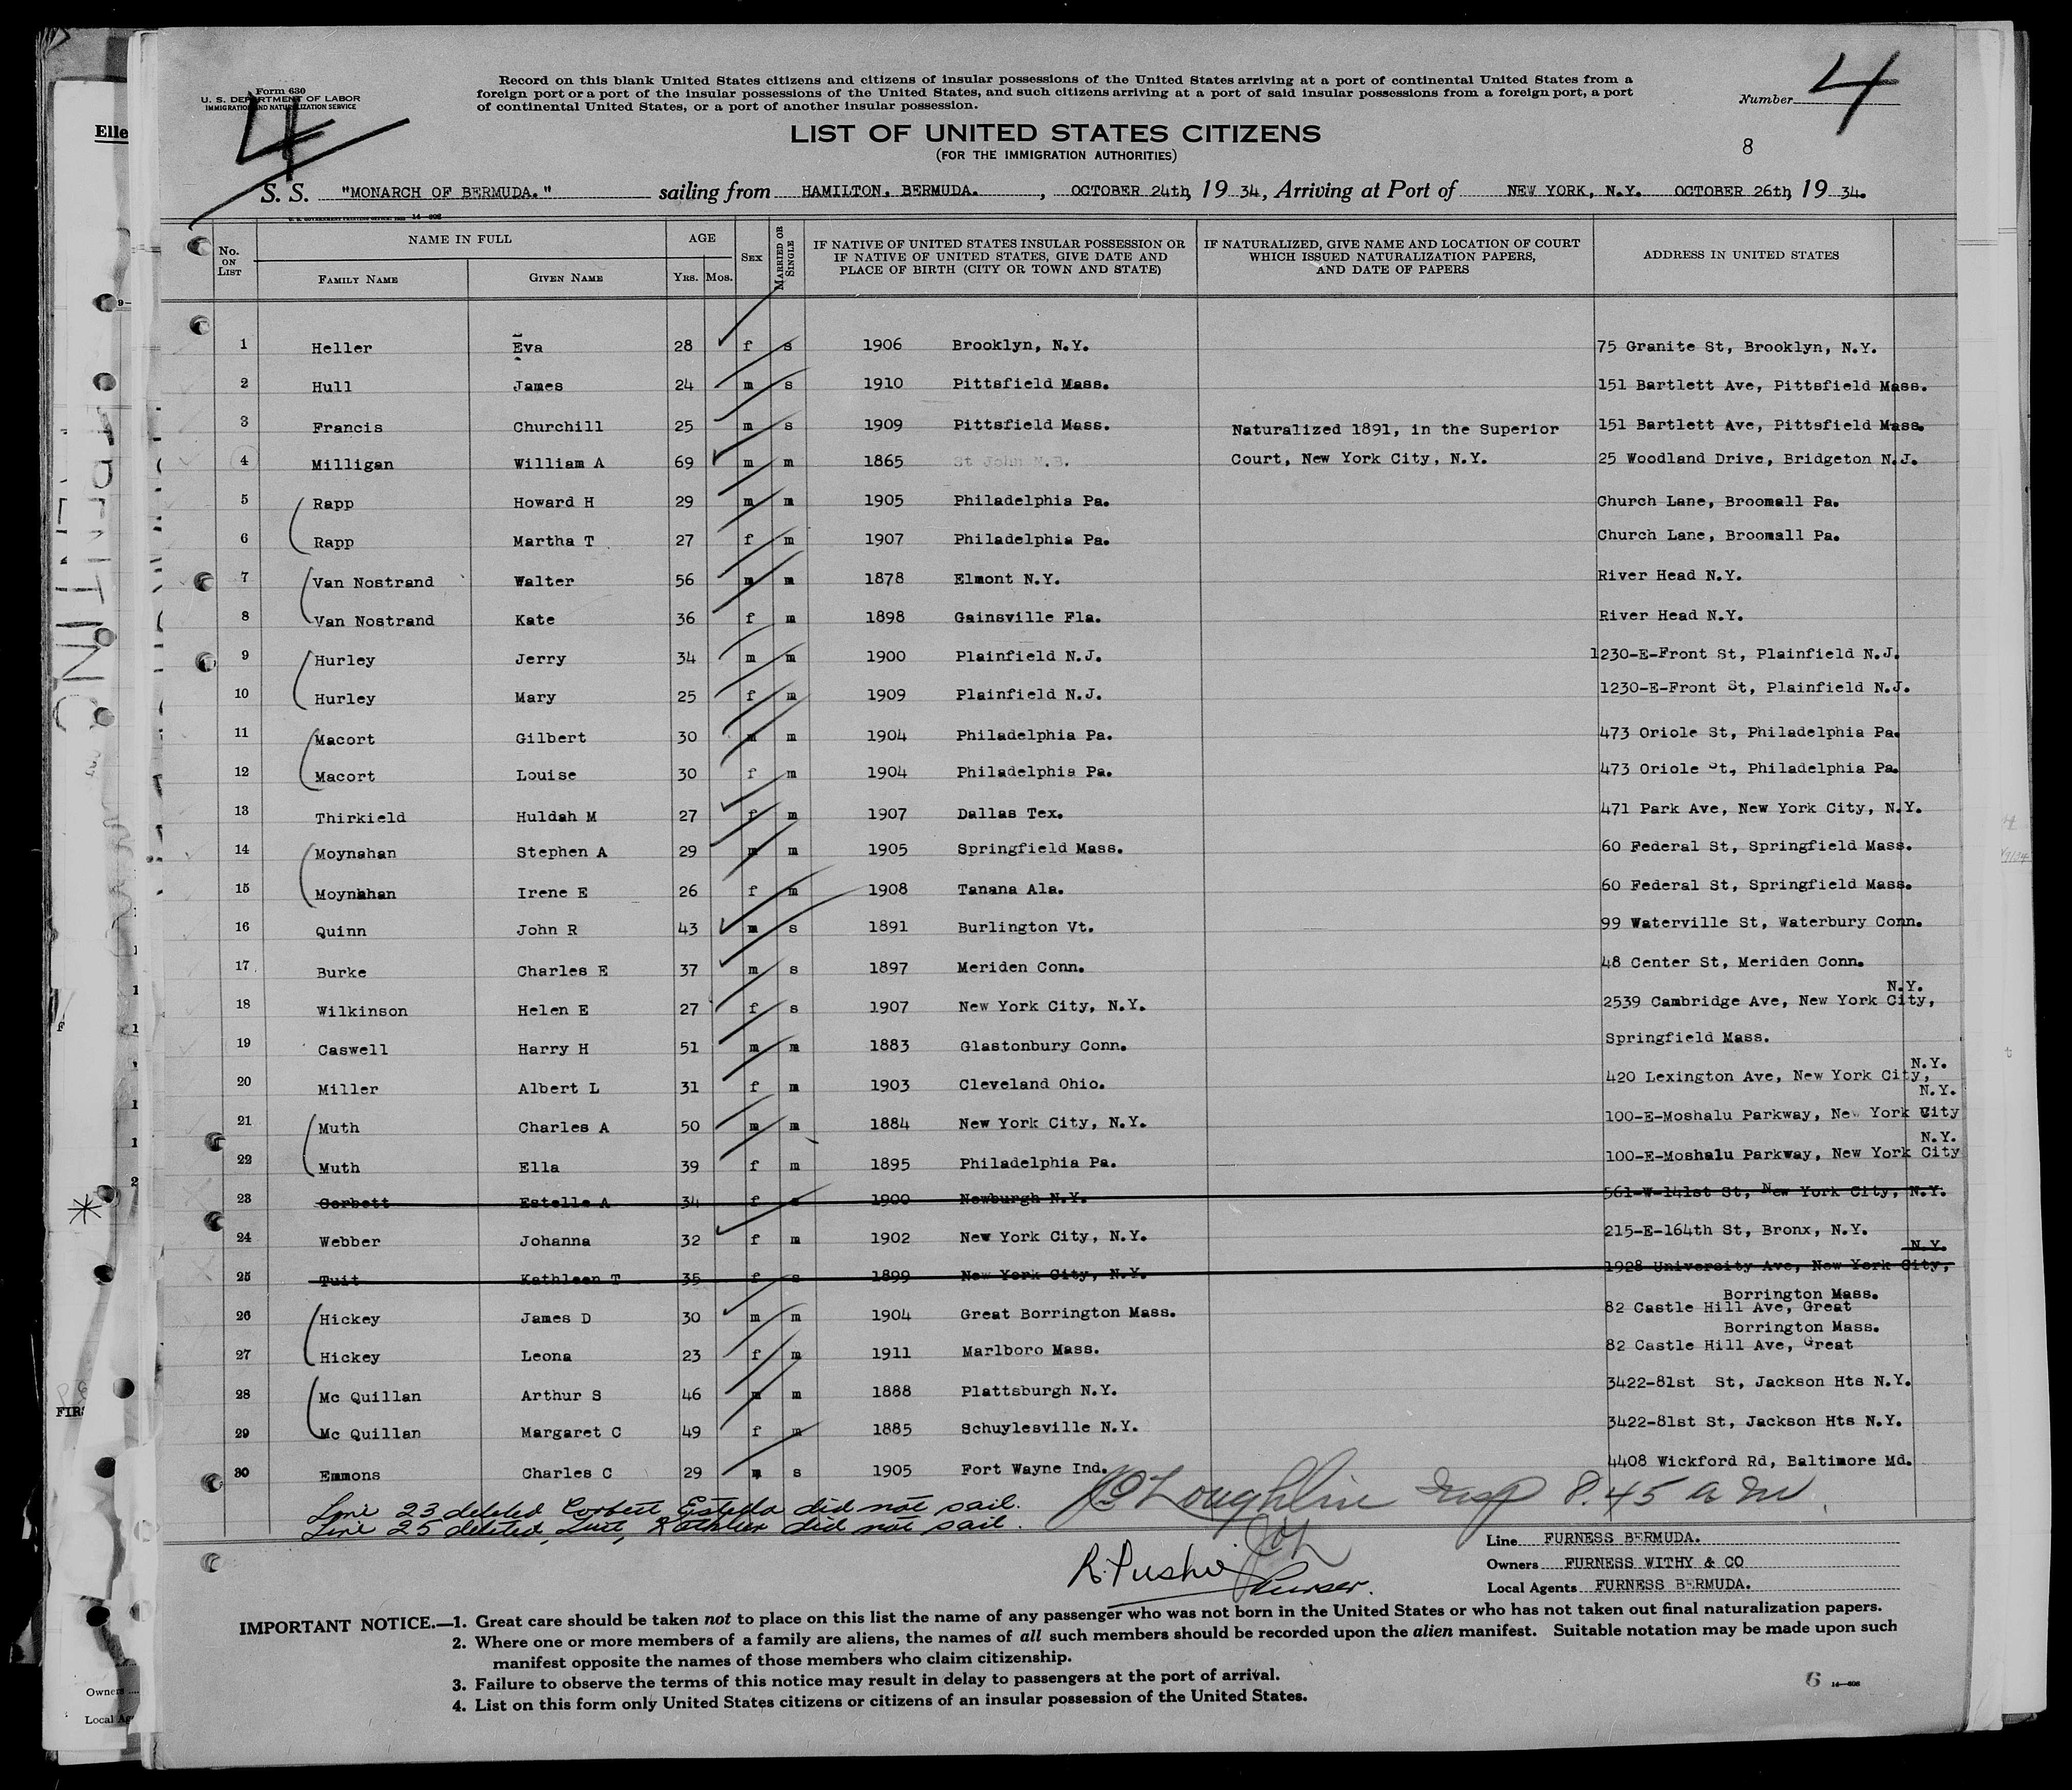 Form 630
U. S. DEPARTMENT OF LABOR
IMMIGRATION AND NATURALIZATION SERVICE
Record on this blank United States citizens and citizens of insular possessions of the United States arriving at a port of continental United States from a
foreign port or a port of the insular possessions of the United States, and such citizens arriving at a port of said insular possessions from a foreign port, a port
of continental United States, or a port of another insular possession.
Number 4
4
LIST OF UNITED STATES CITIZENS
(FOR THE IMMIGRATION AUTHORITIES)
8
S. S. "MONARCH OF BERMUDA." sailing from HAMILTON. BERMUDA. , OCTOBER 24th, 19 34, Arriving at Port of NEW YORK, N.Y. OCTOBER 26th, 19 34.
No. ON LIST
NAME IN FULL
FAMILY NAME GIVEN NAME
AGE
YRS. MOS.
SEX
MARRIED OR SINGLE
IF NATIVE OF UNITED STATES INSULAR POSSESSION OR
IF NATIVE OF UNITED STATES, GIVE DATE AND
PLACE OF BIRTH (CITY OR TOWN AND STATE)
IF NATURALIZED, GIVE NAME AND LOCATION OF COURT
WHICH ISSUED NATURALIZATION PAPERS,
AND DATE OF PAPERS
ADDRESS IN UNITED STATES
1 Heller Eva 28 f s 1906 Brooklyn, N.Y. 75 Granite St, Brooklyn, N.Y.
2 Hull James 24 m s 1910 Pittsfield Mass. 151 Bartlett Ave, Pittsfield Mass.
3 Francis Churchill 25 m s 1909 Pittsfield Mass. 151 Bartlett Ave, Pittsfield Mass.
Naturalized 1891, in the Superior
4 Milligan William A 69 m m 1865 St John N.B. Court, New York City, N.Y. 25 Woodland Drive, Bridgeton N.J.
5 Rapp Howard H 29 m m 1905 Philadelphia Pa. Church Lane, Broomall Pa.
6 Rapp Martha T 27 f m 1907 Philadelphia Pa. Church Lane, Broomall Pa.
7 Van Nostrand Walter 56 m m 1878 Elmont N.Y. River Head N.Y.
8 Van Nostrand Kate 36 f m 1898 Gainsville Fla. River Head N.Y.
9 Hurley Jerry 34 m m 1900 Plainfield N.J. 1230-E-Front St, Plainfield N.J.
10 Hurley Mary 25 f m 1909 Plainfield N.J. 1230-E-Front St, Plainfield N.J.
11 Macort Gilbert 30 m m 1904 Philadelphia Pa. 473 Oriole St, Philadelphia Pa.
12 Macort Louise 30 f m 1904 Philadelphia Pa. 473 Oriole St, Philadelphia Pa.
13 Thirkield Huldah M 27 f m 1907 Dallas Tex. 471 Park Ave, New York City, N.Y.
14 Moynahan Stephen A 29 m m 1905 Springfield Mass. 60 Federal St, Springfield Mass.
15 Moynahan Irene E 26 f m 1908 Tanana Ala. 60 Federal St, Springfield Mass.
16 Quinn John R 43 m s 1891 Burlington Vt. 99 Waterville St, Waterbury Conn.
17 Burke Charles E 37 m s 1897 Meriden Conn. 48 Center St, Meriden Conn.
N.Y.
18 Wilkinson Helen E 27 f s 1907 New York City, N.Y. 2539 Cambridge Ave, New York City,
19 Caswell Harry H 51 m m 1883 Glastonbury Conn. Springfield Mass.
N.Y.
20 Miller Albert L 31 f m 1903 Cleveland Ohio. 420 Lexington Ave, New York City,
N.Y.
21 Muth Charles A 50 m m 1884 New York City, N.Y. 100-E-Moshalu Parkway, New York City
N.Y.
22 Muth Ella 39 f m 1895 Philadelphia Pa. 100-E-Moshalu Parkway, New York City
23 Corbett Estelle A 34 f s 1900 Newburgh N.Y. 561-W-141st St, New York City, N.Y.
24 Webber Johanna 32 f m 1902 New York City, N.Y. 215-E-164th St, Bronx, N.Y.
N.Y.
25 Tuit Kathleen T 35 f s 1899 New York City, N.Y. 1928 University Ave, New York City,
Borrington Mass.
26 Hickey James D 30 m m 1904 Great Borrington Mass. 82 Castle Hill Ave, Great
Borrington Mass.
27 Hickey Leona 23 f m 1911 Marlboro Mass. 82 Castle Hill Ave, Great
28 Mc Quillan Arthur S 46 m m 1888 Plattsburgh N.Y. 3422-81st St, Jackson Hts N.Y.
29 Mc Quillan Margaret C 49 f m 1885 Schuylesville N.Y. 3422-81st St, Jackson Hts N.Y.
30 Emmons Charles C 29 m s 1905 Fort Wayne Ind. 4408 Wickford Rd, Baltimore Md.
Line 23 deleted Corbett Estella did not sail.
Line 25 deleted, Tuit, Kathleen did not sail.
McLoughlin Insp 8.45 a m.
Purser.
Line FURNESS BERMUDA.
Owners FURNESS WITHY & CO
Local Agents FURNESS BERMUDA.
IMPORTANT NOTICE.—1. Great care should be taken not to place on this list the name of any passenger who was not born in the United States or who has not taken out final naturalization papers.
2. Where one or more members of a family are aliens, the names of all such members should be recorded upon the alien manifest. Suitable notation may be made upon such
manifest opposite the names of those members who claim citizenship.
3. Failure to observe the terms of this notice may result in delay to passengers at the port of arrival.
4. List on this form only United States citizens or citizens of an insular possession of the United States.
6 14—608
Elle
FIRS
Owners
Local Ag